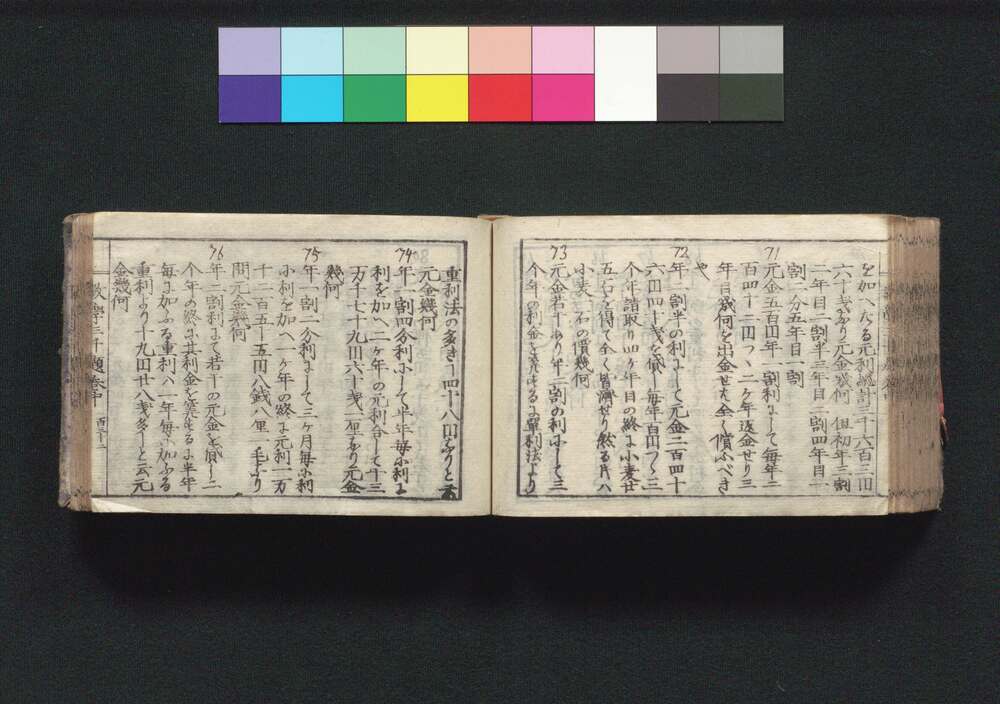 を加へたる元利総計三千六百三円
六十銭なり元金幾何 但初年三割
二年目二割半三年目二割四年目一
割二分五年目一割
71
元金五百円年一割利にして毎年三
百四十二円づゝ二ケ年返金せり三
年目幾何を出金せば全く償ふべき
や
72
年二割半の利にして元金二百四十
六円四十銭を貸し毎年百円づゝ三
個年請取り四ケ年目の終に小麦廿
五石を得て全く皆済せり然る片ハ
小麦一石の價幾何
73
元金若干あり年二割の利にして三
个年の利金を算するに單利法より
重利法の多き丁四十八円なりと云
元金幾何
74
年一割四分利にして半年毎に利に
利を加へ二ケ年の元利合して十三
万千七十九円六十銭一厘なり元金
幾何
75
年一割二分利にして三ヶ月毎に利
に利を加へ一ケ年の終に元利一万
十二百五十五円八銭八厘一毛なり
問元金幾何
76
年二割利にて若干の元金を貸し二
个年の終に其利金を算するに半年
毎に加ふる重利ハ一年毎に加ふる
重利より十九円廿八銭多しと云元
金幾何
數學三千題巻中
百十二